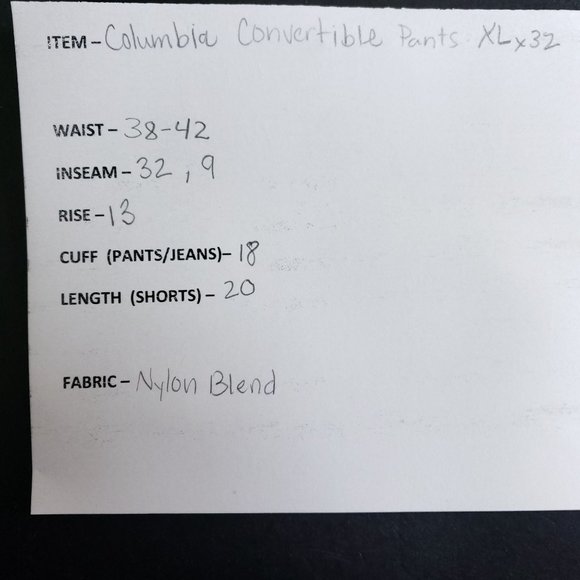 ITEM – Columbia Convertible Pants XLx32
WAIST – 38-42
INSEAM – 32 , 9
RISE – 13
CUFF (PANTS/JEANS)– 18
LENGTH (SHORTS) – 20
FABRIC – Nylon Blend